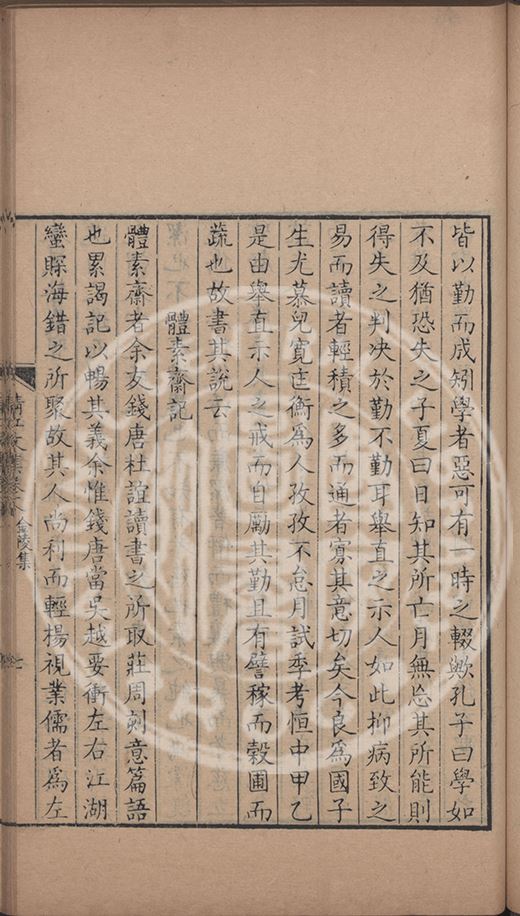 皆以勤而成矧學者惡可有一時之輟歟孔子曰學如
不及猶恐失之子夏曰日知其所亡月無忘其所能則
得失之判决於勤不勤耳舉直之示人如此抑病致之
易而讀者輕積之多而通者寡其意切矣今良爲國子
生尤慕兒寬匡衡爲人孜孜不怠月試季考恒中甲乙
是由舉直示人之戒而自勵其勤且有譬稼而穀圃而
蔬也故書其說云
體素齋記
體素齋者余友錢唐杜誼讀書之所取莊周刻意篇語
也累謁記以暢其義余惟錢唐當吳越要衝左右江湖
蠻賝海錯之所聚故其人尚利而輕楊視業儒者爲左
清江文集卷 金陵集
七